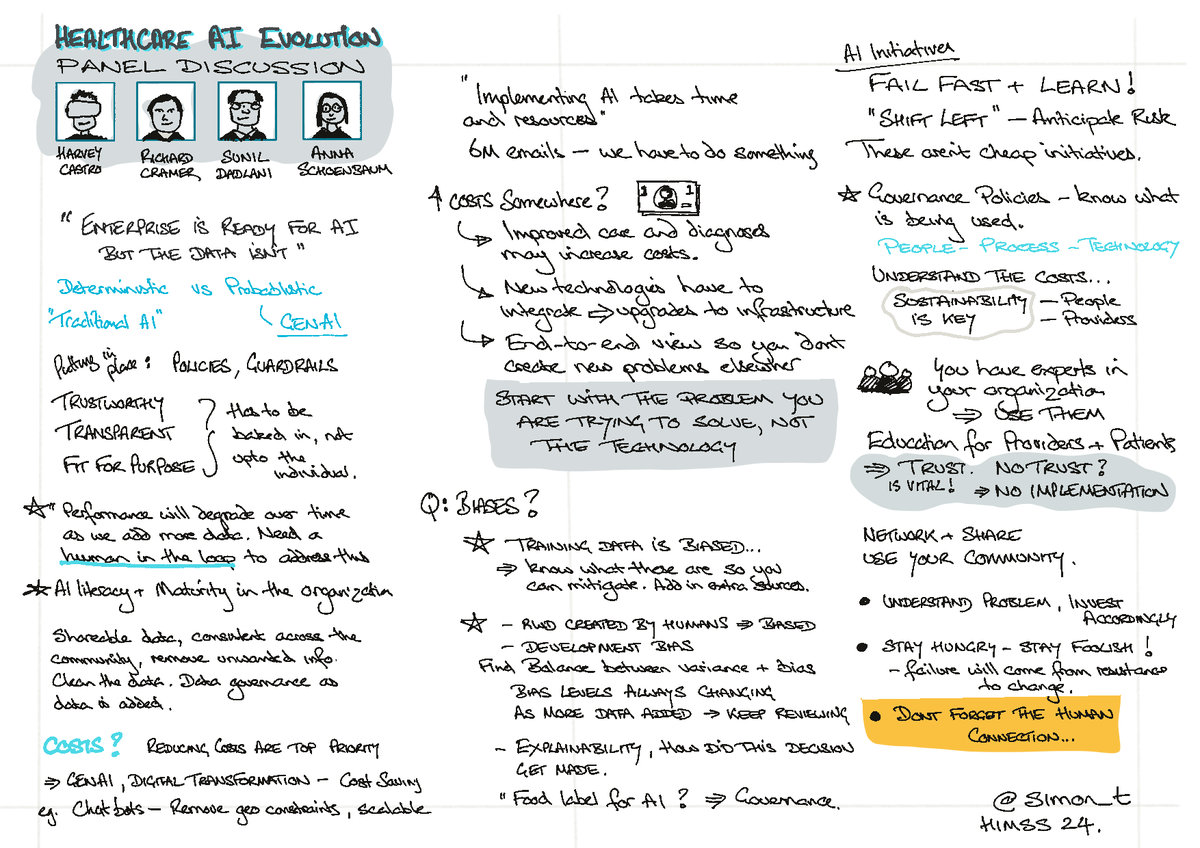 HEALTHCARE AI EVOLUTION
PANEL DISCUSSION
HARVEY
CASTRO
RICHARD
CRAMER
SUNIL
DADLANI
ANNA
SCHOENBAUM
"ENTERPRISE IS READY FOR AI
BUT THE DATA ISN'T"
Deterministic vs Probablistic
"Traditional AI"
GENAI
Putting in place: POLICIES, GUARDRAILS
TRUSTWORTHY
TRANSPARENT
FIT FOR PURPOSE
Has to be
baked in, not
upto the
individual.
"Performance will degrade over time
as we add more data. Need a
human in the loop to address this
AI literacy + Maturity in the organization
Shareable data, consistent across the
community, remove unwanted info.
Clean the data. Data governance as
data is added.
COSTS? REDUCING COSTS ARE TOP PRIORITY
⇒ GENAI, DIGITAL TRANSFORMATION - Cost Saving
eg. Chatbots - Remove geo constraints, scalable
"Implementing AI takes time
and resources"
6M emails - we have to do something
↑ COSTS Somewhere?
1 1
↳ Improved care and diagnoses
may increase costs.
↳ New technologies have to
integrate ⇒ upgrades to infrastructure
↳ End-to-end view so you dont
create new problems elsewher
START WITH THE PROBLEM YOU
ARE TRYING TO SOLVE, NOT
THE TECHNOLOGY
Q: BIASES?
☆ TRAINING DATA IS BIASED...
⇒ know what these are so you
can mitigate. Add in extra sources.
☆ - RWD CREATED BY HUMANS ⇒ BIASED
- DEVELOPMENT BIAS
Find Balance between variance + bias
BIAS LEVELS ALWAYS CHANGING
AS MORE DATA ADDED → KEEP REVIEWING
- EXPLAINABILITY, HOW DID THIS DECISION
GET MADE.
"Food label for AI? ⇒ Governance.
AI Initiatives
FAIL FAST + LEARN!
"SHIFT LEFT" - Anticipate Risk
These aren't cheap initiatives.
☆ Governance Policies - know what
is being used.
PEOPLE - PROCESS - TECHNOLOGY
UNDERSTAND THE COSTS...
SUSTAINABILITY
IS KEY
- People
- Providers
You have experts in
your organization
⇒ USE THEM
Education for Providers + Patients
⇒ TRUST.
IS VITAL!
NO TRUST?
⇒ NO IMPLEMENTATION
NETWORK + SHARE
USE YOUR COMMUNITY.
• UNDERSTAND PROBLEM, INVEST
ACCORDINGLY
• STAY HUNGRY - STAY FOOLISH!
- failure will come from resistance
to change.
• DONT FORGET THE HUMAN
CONNECTION...
@simon_t
HIMSS 24.